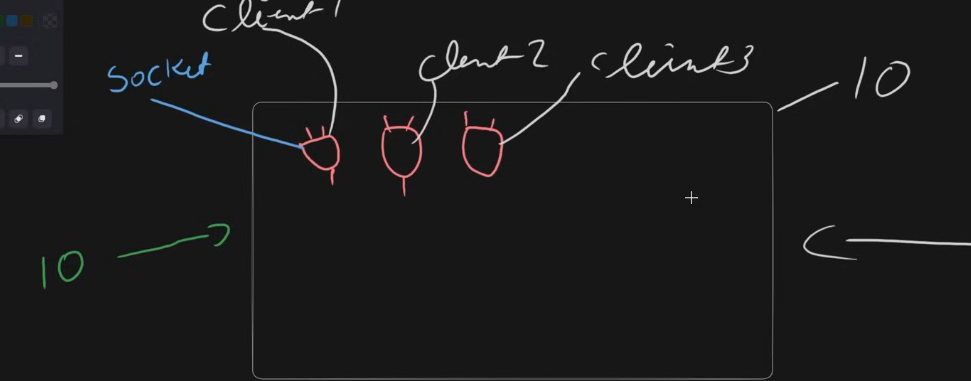 Client 1
Socket
Client 2
Client 3
10
10